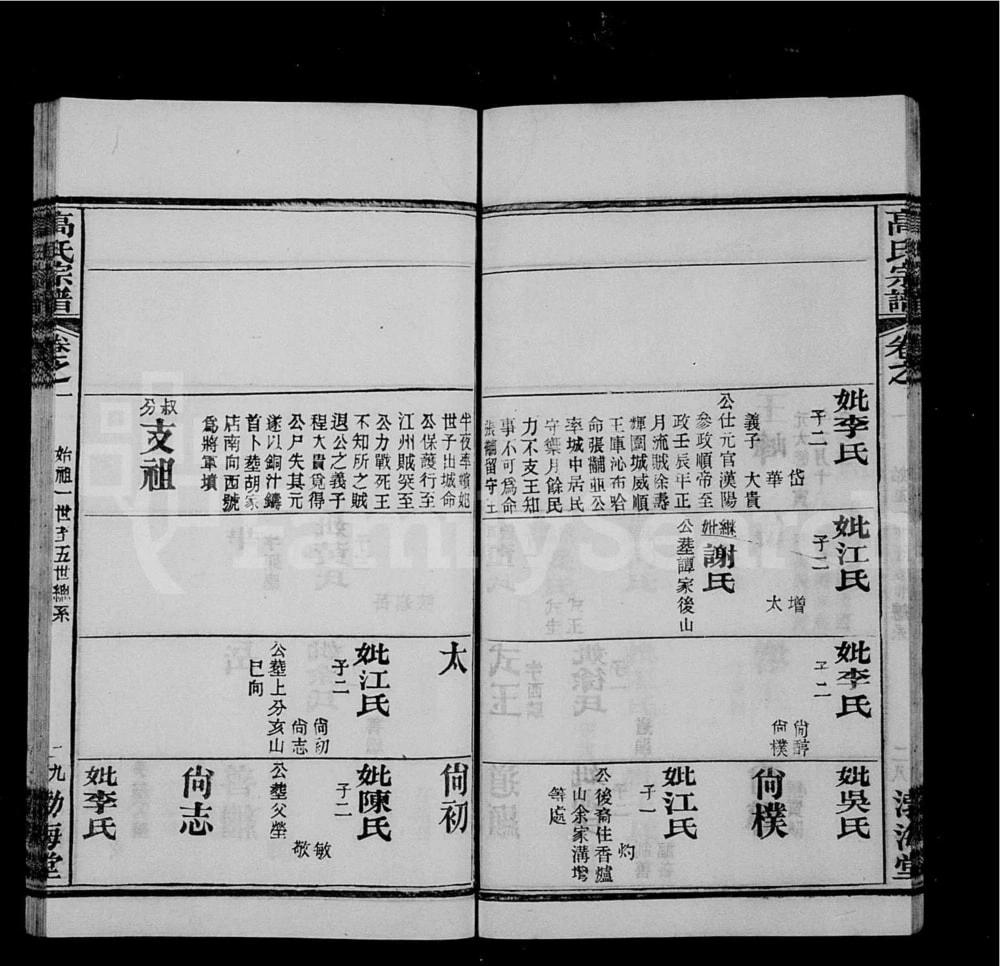 高氏宗譜
卷之
渤海堂
妣李氏
子二
岱
華
義子 大貴
公仕元官漢陽
參政順帝至
政壬辰年正
月流賊徐壽
輝圍城威順
王庫沁布哈
命張驌駆公
率城中居民
守禦月餘民
力不支王知
事不可為命
張驌留守王
妣江氏
子二
增
太
繼妣謝氏
公塟譚家後山
妣李氏
子二
尙醇
尙樸
妣吳氏
尙樸
妣江氏
子一
灼
公後裔住香爐
山余家溝塆
等處
半夜率嬪妃
世子出城命
公保護行至
江州賊突至
公力戰死王
不知所之賊
退公之義子
程大貴覓得
公尸失其元
遂以銅汁鑄
首卜塟胡家
店南向西號
為將軍墳
叔分支祖
太
妣江氏
子二
尙初
尙志
公塟上分亥山
巳向
尙初
妣陳氏
子二
敏
敬
公塟父塋
尙志
妣李氏
高氏宗譜
卷之一
始祖一世至五世總系
一九
勃海堂